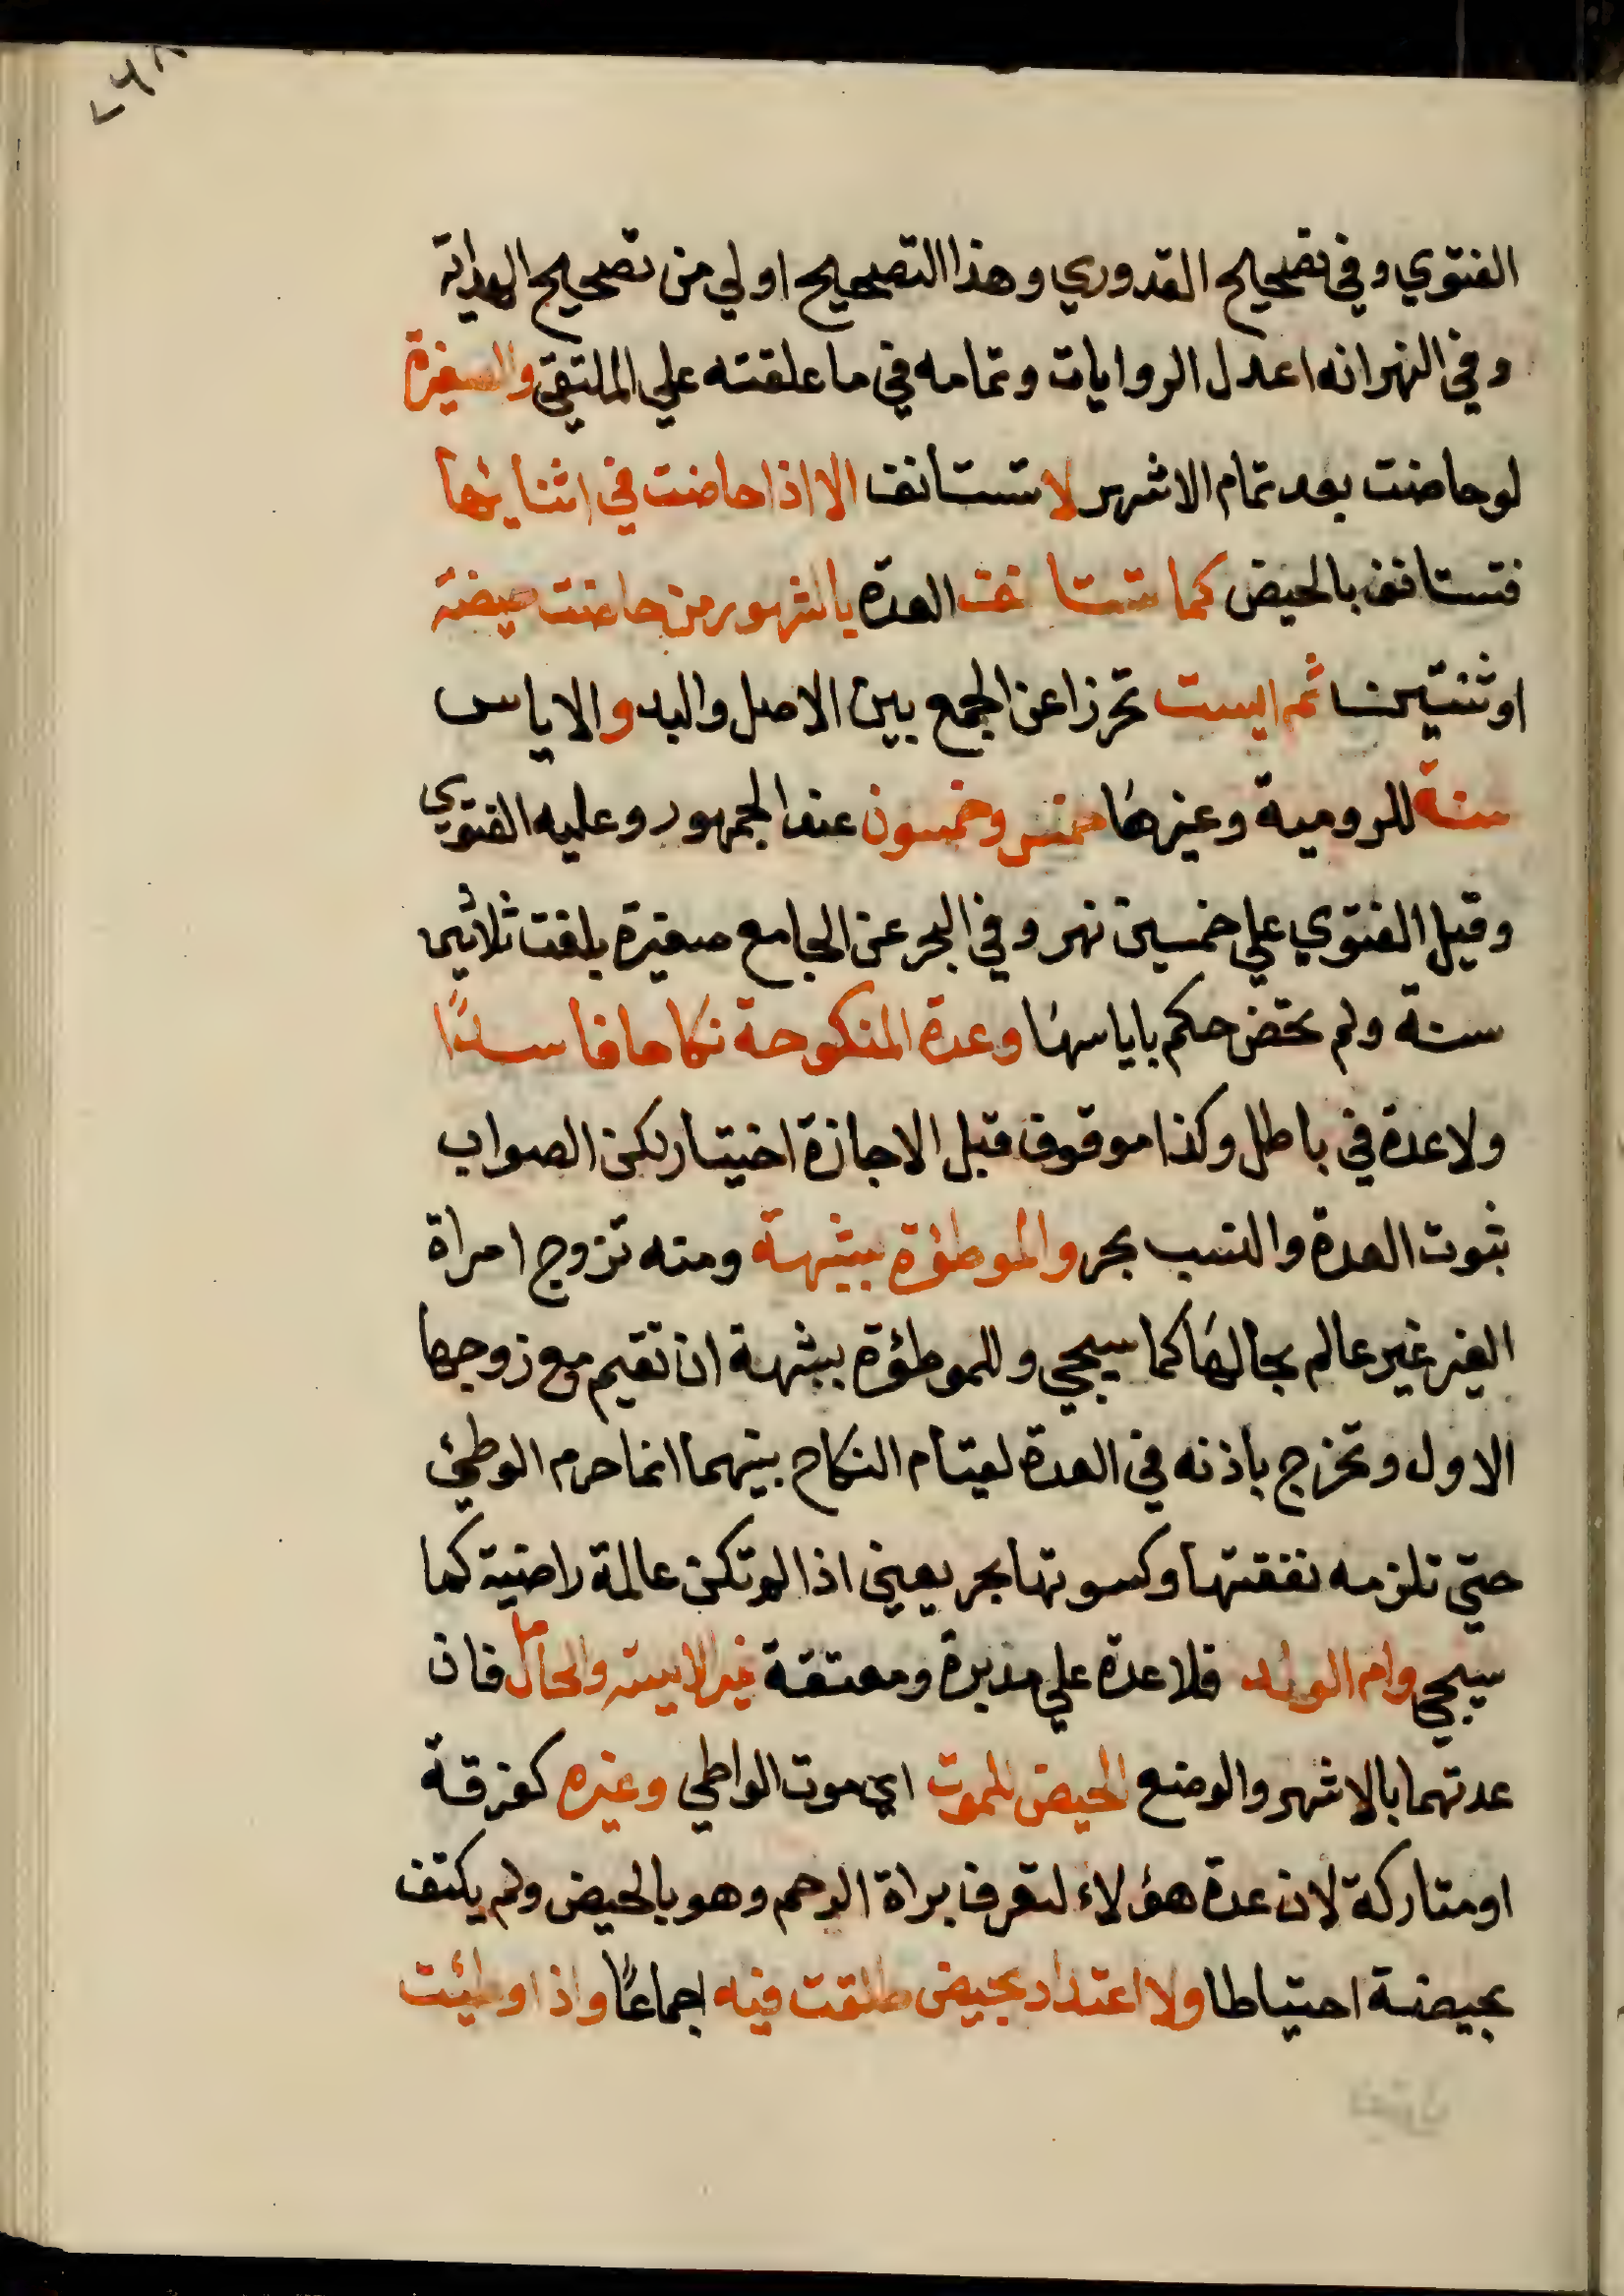 الفتوي وفي تصحيح القدوري وهذا التصحيح اولي من تصحيح الهداية
وفي النهر انه اعدل الروايات وتمامه في ما علقته علي الملتقي والصغيرة
لو حاضت بعد تمام الاشهر لا تستانف الا اذا حاضت في اثنائها
فتستانف بالحيض كما تستانف العدة بالشهور من حاضت حيضة
او ثنتين ثم ايست تحرزا عن الجمع بين الاصل والبدل والاياس
سنة للرومية وغيرها خمس وخمسون عند الجمهور وعليه الفتوي
وقيل الفتوي علي خمسين نهر وفي البحر عن الجامع صغيرة بلغت ثلاثين
سنة ولم تحض حكم باياسها وعدة المنكوحة نكاحا فاسدًا
ولا عدة في باطل وكذا موقوف قبل الاجازة اختيار لكن الصواب
ثبوت العدة والنسب بحر والموطؤة بشبهة ومنه تزوج امراة
الغير غير عالم بحالها كما سيجي وللموطؤة بشبهة ان تقيم مع زوجها
الاول وتخرج باذنه في العدة لقيام النكاح بينهما انما حرم الوطئ
حتي تلزمه نفقتها وكسوتها بحر يعني اذا لم تكن عالمة راضية كما
سيجي وام الولد فلا عدة علي مدبرة ومعتقة غير الايسة والحامل فان
عدتهما بالاشهر والوضع الحيض للموت اي موت الواطي وغيره كفرقة
او متاركة لان عدة هؤلاء لتعرف براة الرحم وهو بالحيض ولم يكتف
بحيضة احتياطا ولا اعتداد بحيض طلقت فيه اجماعًا واذا وطئت